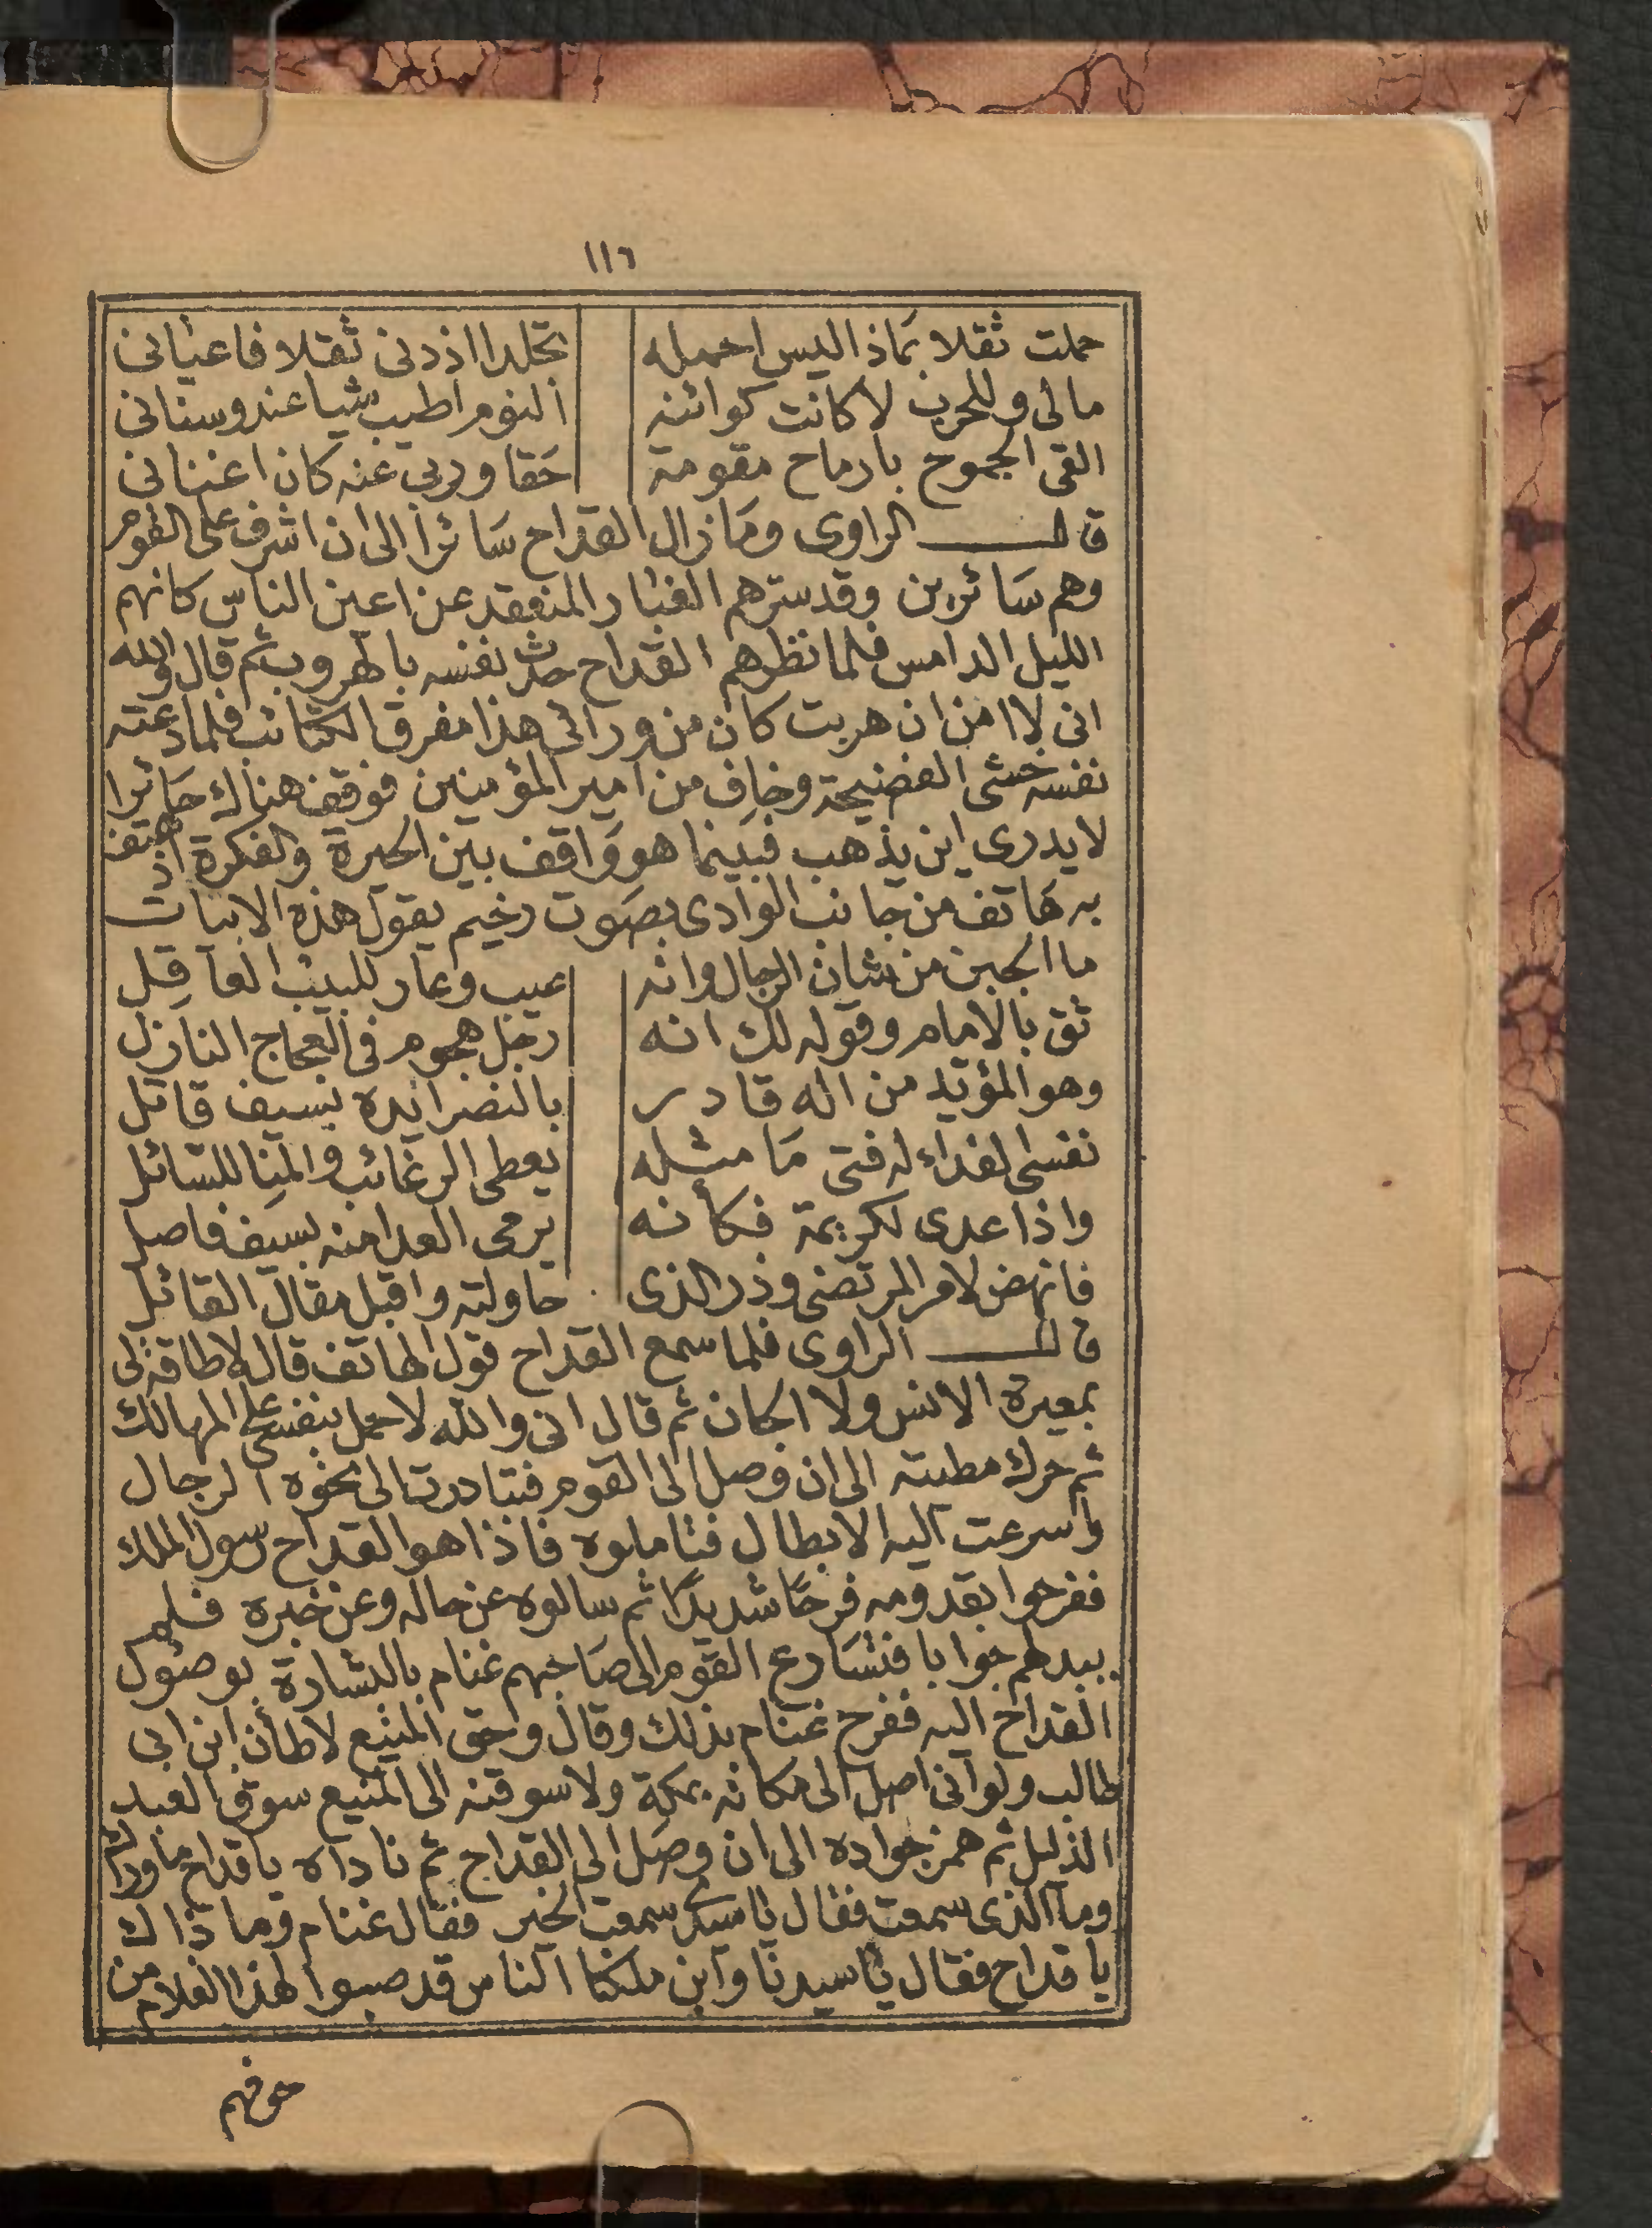 ١١٦
حملت ثقلا بماذا ليس احمله تجلدا اذ دنى ثقلا فاعيانى
مالى وللحرب لا كانت كوائنه النوم اطيب شيا عند وسنانى
القى الجموح بارماح مقومة حقا وربى عنه كان اغنانى
قال الراوى ومازال القداح سائرا الى ان اشرف على القوم
وهم سائرين وقد سترهم الغبار المنعقد عن اعين الناس كانهم
الليل الدامس فلما نظرهم القداح حدث نفسه بالهروب ثم قال والله
انى لا امن ان هربت كان من ورائى هذا مفرق الكتائب فلما دعته
نفسه خشى الفضيحة وخاف من امير المؤمنين فوقف هناك حائرا
لا يدرى اين يذهب فبينما هو واقف بين الحيرة والفكرة اذ هتف
به هاتف من جانب الوادى بصوت رخيم يقول هذه الابيات
ما الجبن من شان الرجال وانه عيب وعار للبيب العاقل
ثق بالامام وقوله لك انه رجل هجوم فى العجاج النازل
وهو المؤيد من اله قادر بالنصر ايده بسيف قاتل
نفسى لفداء له فتى ما مثله يعطى الرغائب والمنا للسائل
واذا عدى لكريمة فكأنه يرمى العدا منه بسيف فاصل
فانهض لامر المرتضى وذر الذى حاولته واقبل مقال القائل
قال الراوى فلما سمع القداح قول الهاتف قال لا طاقة لى
بمعيرة الانس ولا الجان ثم قال انى والله لاحمل بنفسى على المهالك
ثم حرك مطيته الى ان وصل الى القوم فتبادرت الى نحوه الرجال
واسرعت اليه الابطال فتاملوه فاذا هو القداح رسول الملك
ففرحوا بقدومه فرحا شديدا ثم سالوه عن حاله وعن خبره فلم
يبد لهم جوابا فتسارع القوم الى صاحبهم غنام بالبشارة بوصول
القداح اليه ففرح غنام بذلك وقال وحق المنيع لاطأن ابن ابى
طالب ولو انى اصل الى مكانه بمكة ولا سوقنه الى المنيع سوق العبد
الذليل ثم همز جواده الى ان وصل الى القداح ثم ناداه يا قداح ما وراك
وما الذى سمعت فقال يا سيدى سمعت الخبر فقال غنام وما ذاك
يا قداح فقال يا سيدنا وابن ملكنا الناس قد صبوا لهذا الغلام من
خوفهم